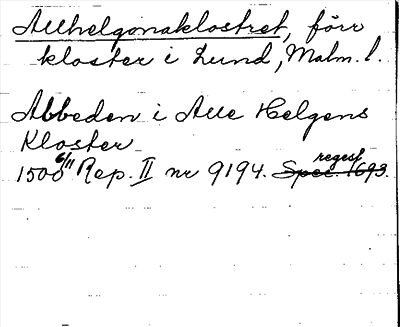 Allhelgonaklostret, förr
kloster i Lund, Malm. l.
Abbeden i Alle Helgens
Kloster
1500 6/11 Rep. II nr 9194. Spec. regest 1693.